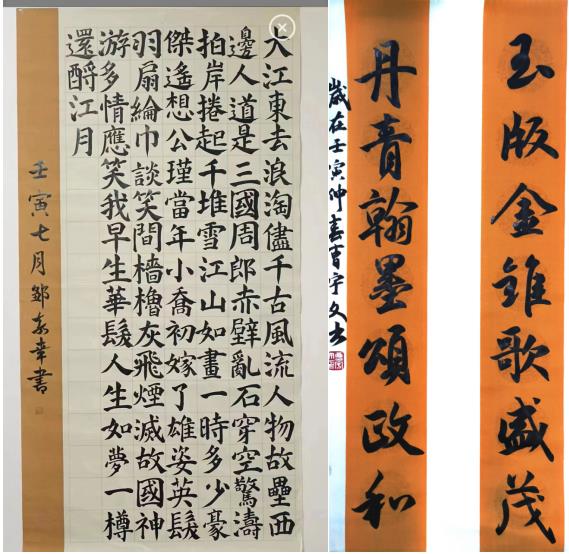 大江東去浪淘儘千古風流人物故壘西
邊人道是三國周郎赤壁亂石穿空驚濤
拍岸捲起千堆雪江山如畫一時多少豪
傑遙想公瑾當年小喬初嫁了雄姿英髮
羽扇綸巾談笑間檣櫓灰飛煙滅故國神
游多情應笑我早生華髮人生如夢一樽
還酹江月
壬寅七月鄒幸書
玉版金錐歌盛茂
丹青翰墨頌政和
歲在壬寅仲春曹宇文書